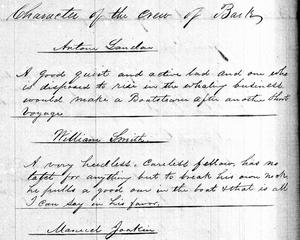 Character of the Crew of Bark
Antone
A good quiet and active lad and one who
is disposed to rise in the whaling business
would make a Boatsteerer after another Short
Voyage
William Smith
A very heedless, Careless fellow, has no
for anything but to break his own neck
he pulls a good oar in the boat & that is all
I can say in his favor.
Manuel Joakim